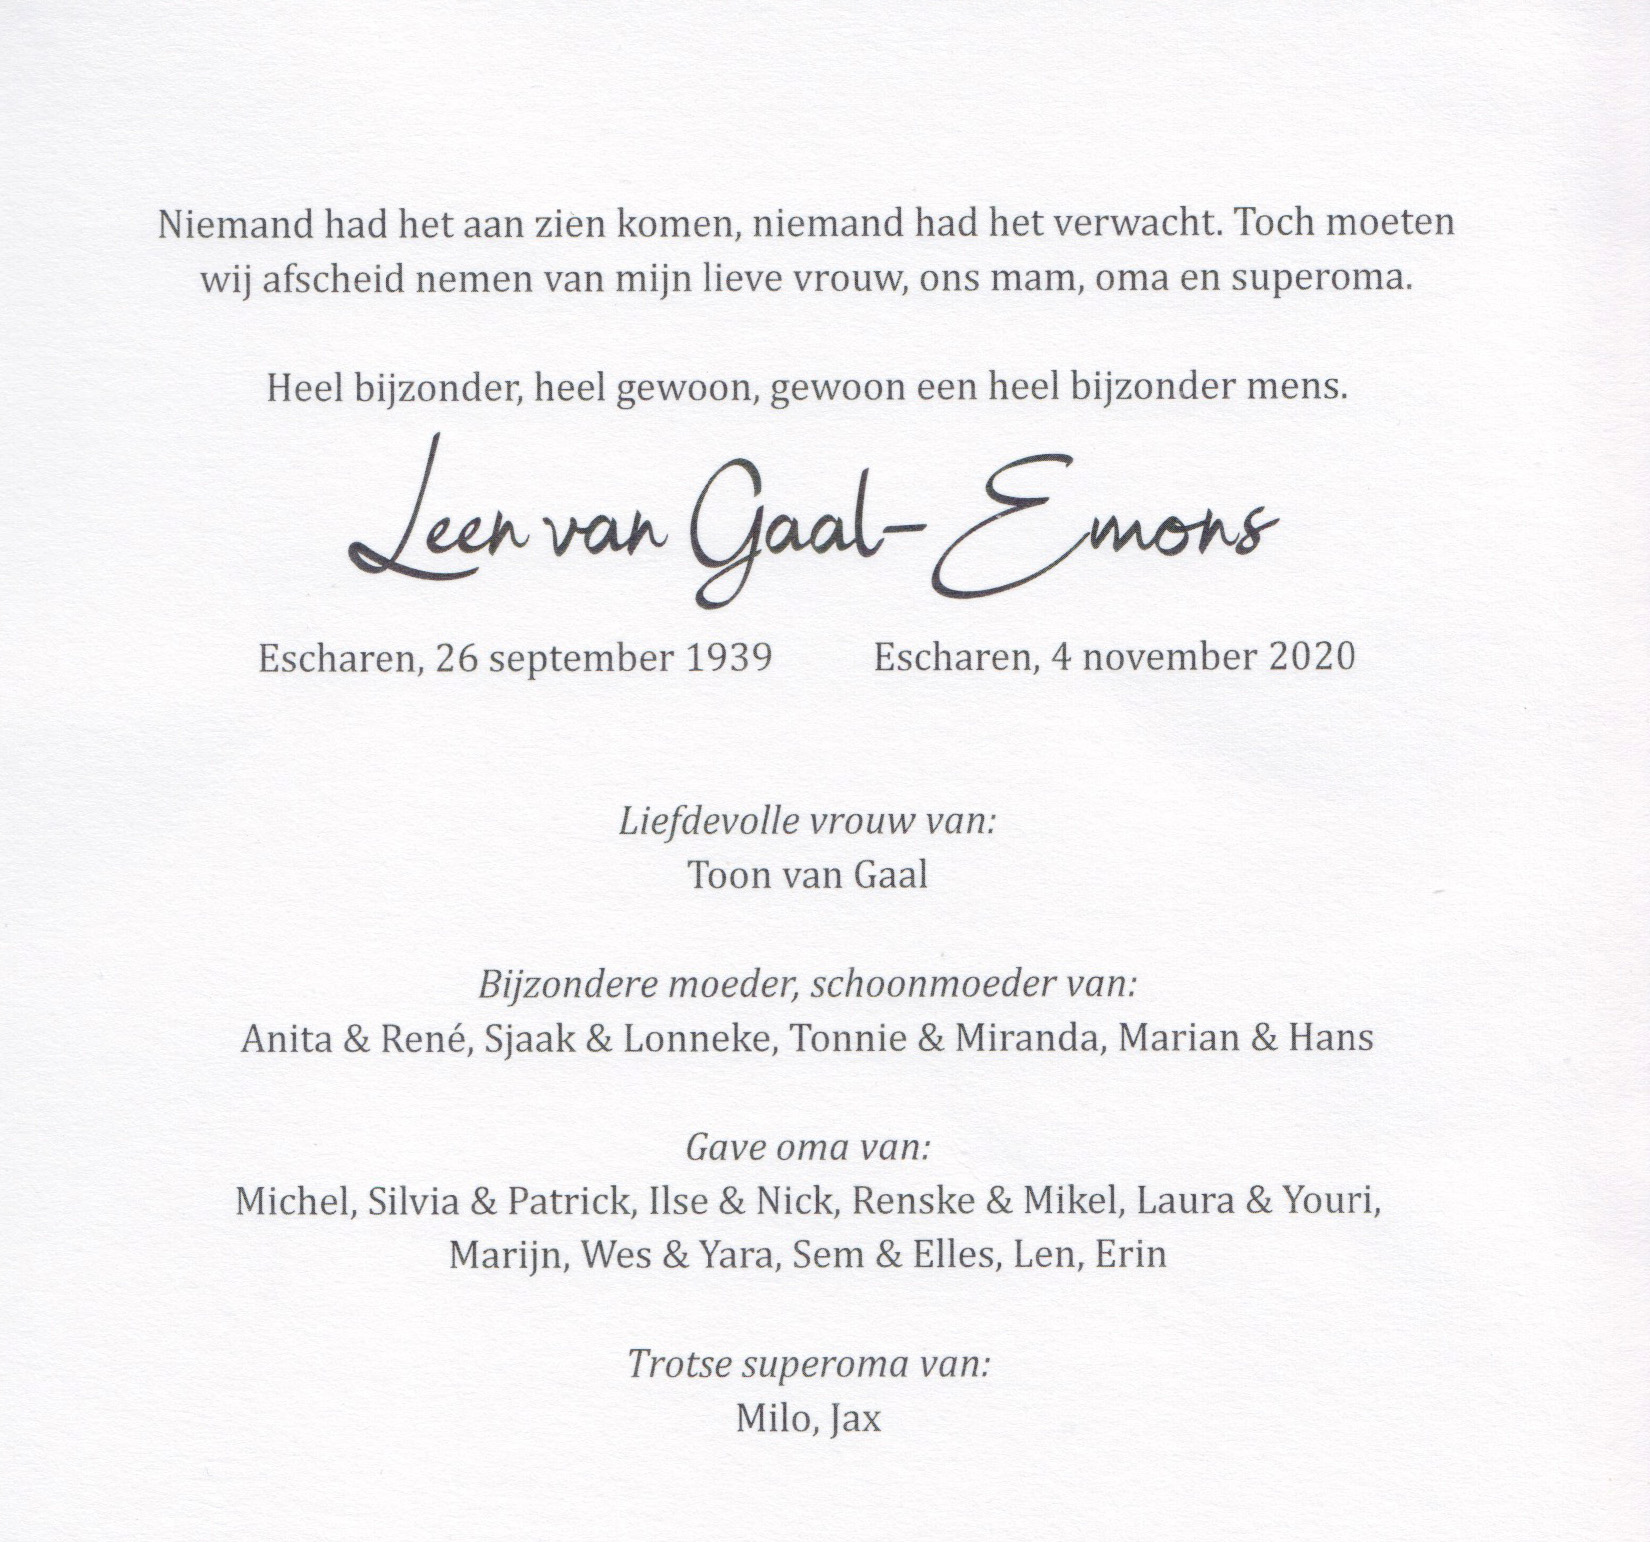 Niemand had het aan zien komen, niemand had het verwacht. Toch moeten
wij afscheid nemen van mijn lieve vrouw, ons mam, oma en superoma.
Heel bijzonder, heel gewoon, gewoon een heel bijzonder mens.
Leen van Gaal-Emons
Escharen, 26 september 1939 Escharen, 4 november 2020
Liefdevolle vrouw van:
Toon van Gaal
Bijzondere moeder, schoonmoeder van:
Anita & René, Sjaak & Lonneke, Tonnie & Miranda, Marian & Hans
Gave oma van:
Michel, Silvia & Patrick, Ilse & Nick, Renske & Mikel, Laura & Youri,
Marijn, Wes & Yara, Sem & Elles, Len, Erin
Trotse superoma van:
Milo, Jax